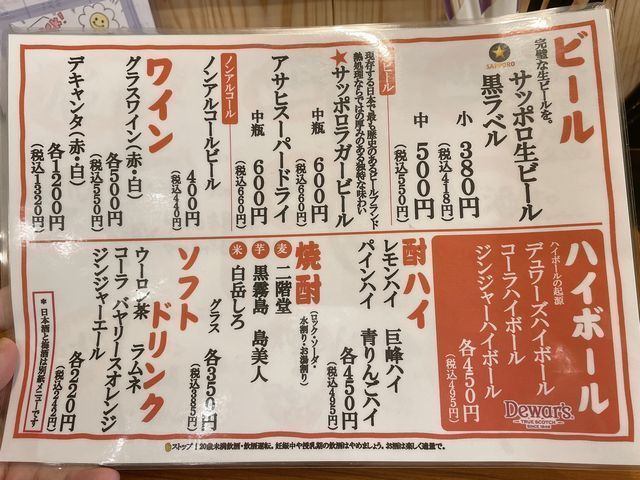 ビール
完璧な生ビールを。
SAPPORO
サッポロ生ビール
黒ラベル
小 380円
(税込418円)
中 500円
(税込550円)
現存する日本で最も歴史のあるビールブランド
熱処理ならではの厚みのある独特な味わい
★サッポロラガービール
中瓶 600円
(税込660円)
アサヒスーパードライ
中瓶 600円
(税込660円)
ノンアルコール
ノンアルコールビール
400円
(税込440円)
ワイン
グラスワイン(赤・白)
各500円
(税込550円)
デキャンタ(赤・白)
各1200円
(税込1320円)
ハイボール
ハイボールの起源
デュワーズハイボール
コーラハイボール
ジンジャーハイボール
各450円
(税込495円)
Dewar's
TRUE SCOTCH
SINCE 1846
酎ハイ
レモンハイ 巨峰ハイ
パインハイ 青りんごハイ
各450円
(税込495円)
焼酎
(ロック・ソーダ・
水割り・お湯割り)
麦 二階堂
芋 黒霧島 島美人
米 白岳しろ
グラス 各350円
(税込385円)
ソフトドリンク
ウーロン茶 ラムネ
コーラ バヤリースオレンジ
ジンジャーエール
各220円
(税込242円)
*日本酒と梅酒は別紙メニューです
ストップ!20歳未満飲酒・飲酒運転。妊娠中や授乳期の飲酒はやめましょう。お酒は楽しく適量で。